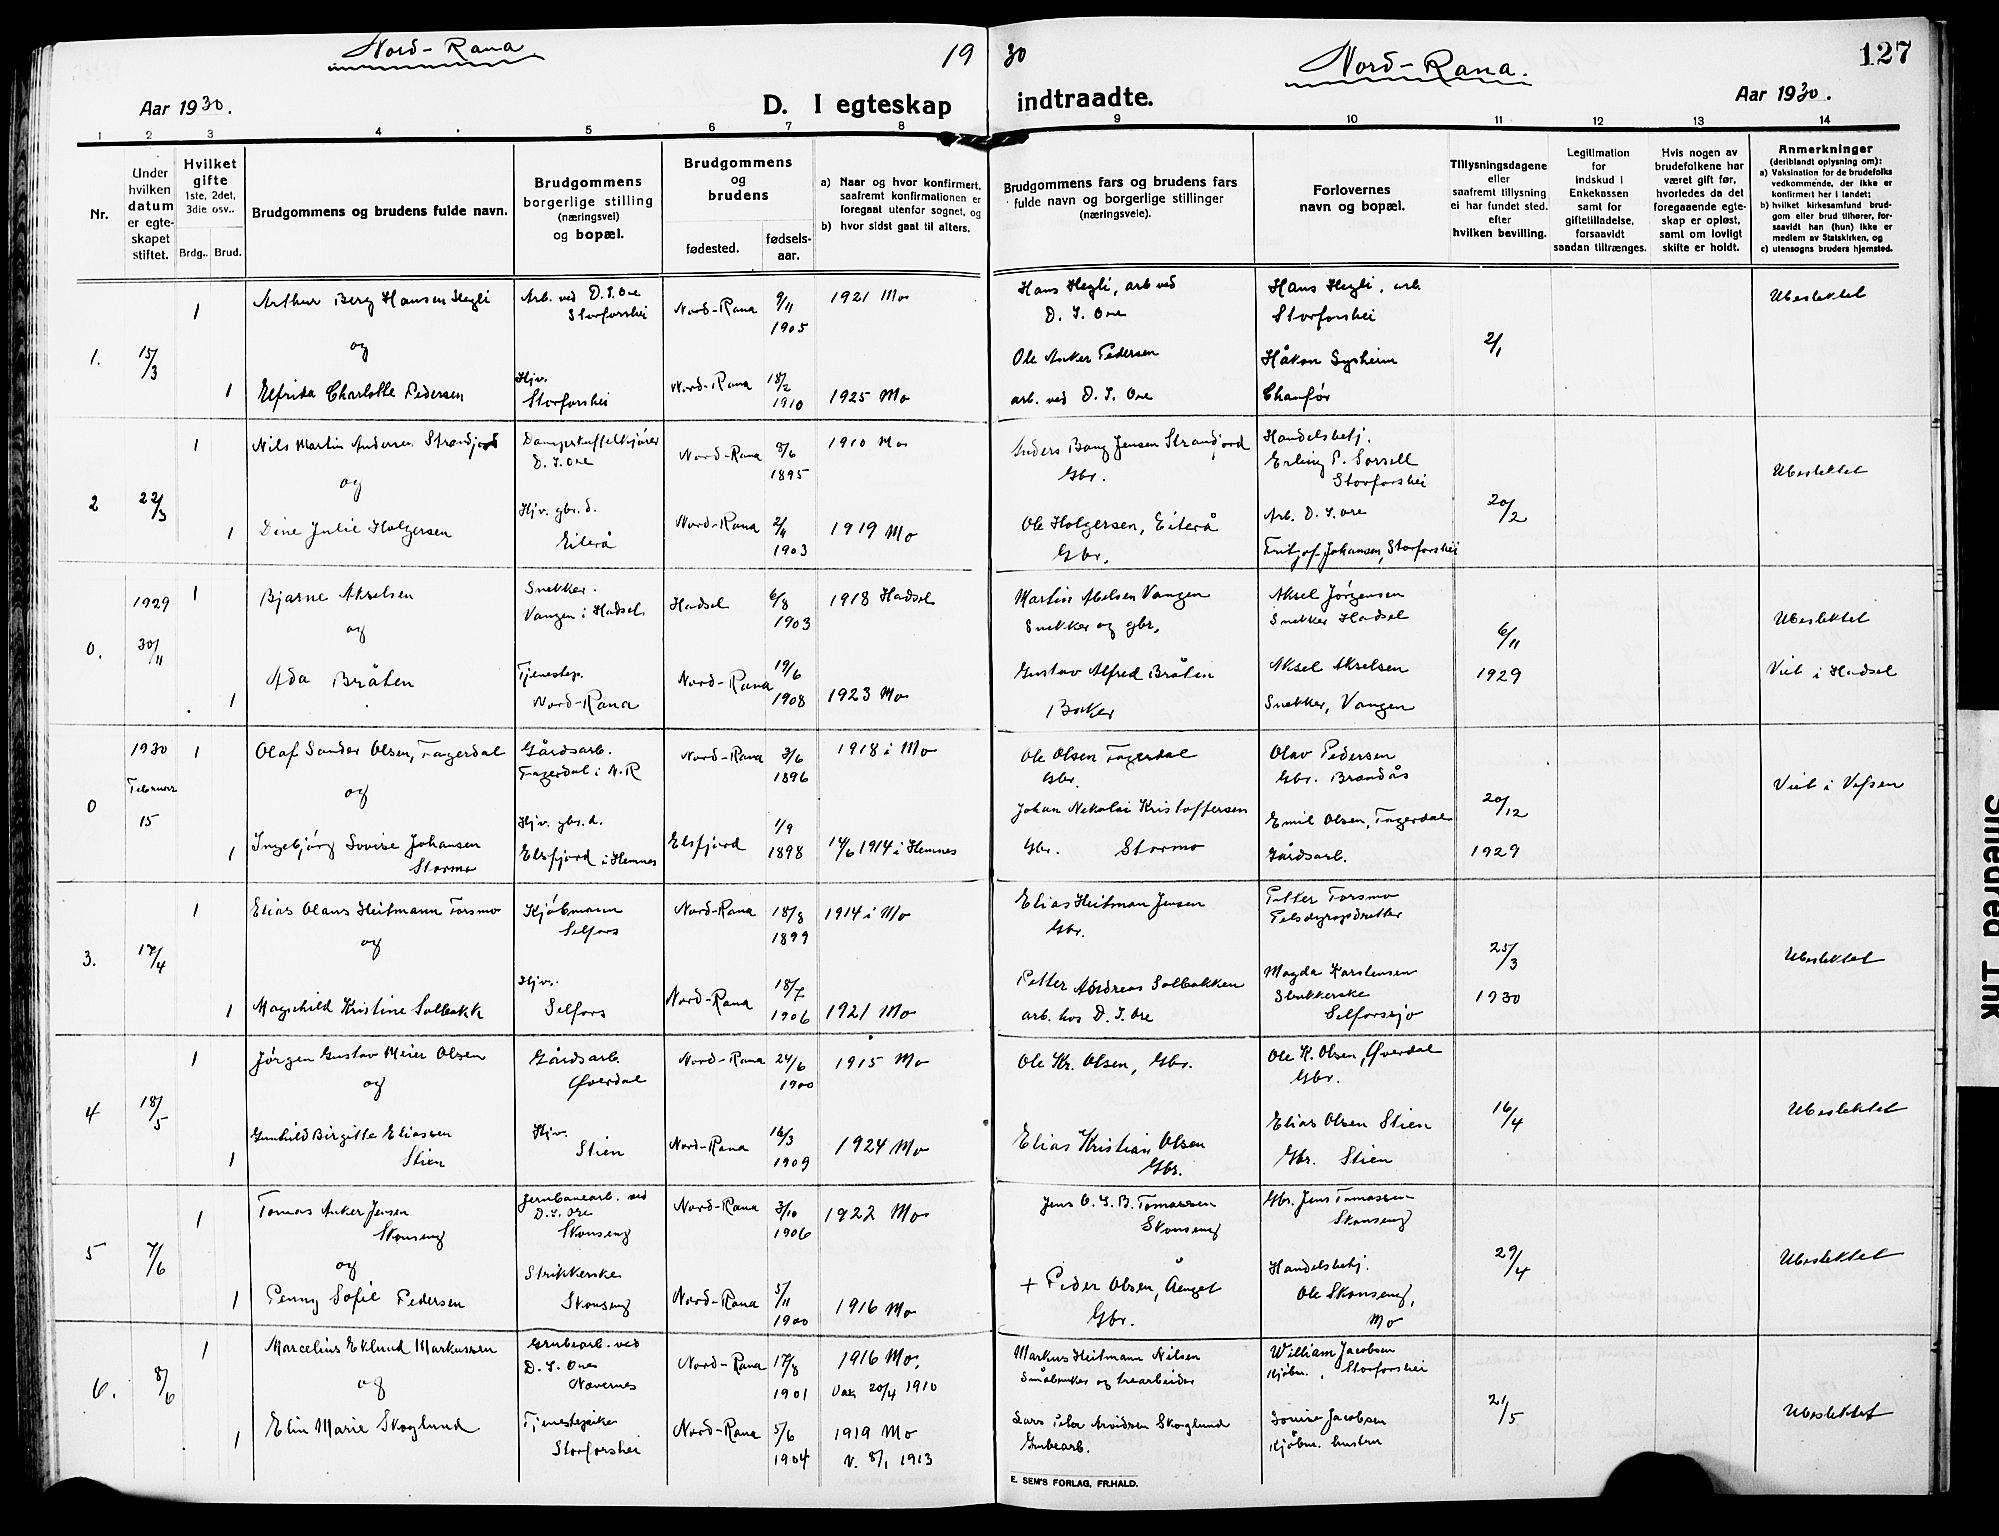 Nord-Rana
19
30
Nord-Rana.
127
Aar 1930.
D. I egteskap
indtraadte.
Aar 1930.
1 2 3 4 5 6 7 8 9 10 11 12 13 14
Nr.
Under hvilken datum er egteskapet stiftet.
Hvilket gifte
1ste, 2det, 3die osv..
Brdg.. Brud.
Brudgommens og brudens fulde navn.
Brudgommens borgerlige stilling (næringsvei) og bopæl.
Brudgommens og brudens
fødested. fødselsaar.
a) Naar og hvor konfirmert, saafremt konfirmationen er foregaat utenfor sognet, og
b) hvor sidst gaat til alters.
Brudgommens fars og brudens fars fulde navn og borgerlige stillinger (næringsveie).
Forlovernes navn og bopæl.
Tillysningsdagene eller saafremt tillysning ei har fundet sted. efter hvilken bevilling.
Legitimation for indskud i Enkekassen samt for giftetilladelse, forsaavidt saadan tiltrænges.
Hvis nogen av brudefolkene har været gift før, hvorledes da det foregaaende egteskap er opløst, samt om lovligt skifte er holdt.
Anmerkninger
(deriblandt oplysning om):
a) Vaksination for de brudefolks vedkommende, der ikke er konfirmert her i landet;
b) hvilket kirkesamfund brudgom eller brud tilhører, forsaavidt han (hun) ikke er medlem av Statskirken, og
c) utensogns bruders hjemsted.
1. 15/3
1 Arthur Berg Hansen Hegli
Arb. ved D. I. Ore
Storforshei
Nord-Rana 9/11 1905
1921 Mo
Hans Hegli, arb ved
D. I. Ore
Hans Hegli, arb.
Storforshei
2/1
Ubeslektet
og
1 Elfrida Charlotte Pedersen
Hjv.
Storforshei
Nord-Rana 18/2 1910
1925 Mo
Ole Anker Pedersen
arb. ved D. I. Ore
Håkon
Chauför
2 22/3
1 Nils Martin Andersen Strandjord
D. I. Ore
Nord-Rana 8/6 1895
1910 Mo
Anders Bang Jensen Strandjord
Gbr.
Handelsbetj.
Erling P. Sorsell
Storforshei
20/2
Ubeslektet
og
1 Dine Julie Holgersen
Hjv. gbr. d.
Eiterå
Nord-Rana 2/4 1903
1919 Mo
Ole Holgersen, Eiterå
Gbr.
Arb. D. I. Ore
Fritjof Johansen, Storforshei
0. 1929
30/11
1 Bjarne Akselsen
Snekker.
Vangen i Hadsel
Hadsel 6/8 1903
1918 Hadsel
Martin Abelsen Vangen
Snekker og gbr.
Aksel Jörgensen
Snekker Hadsel
6/11
1929
Ubeslektet
Viet i Hadsel
og
1 Ada Bråten
Tjenestep.
Nord-Rana
Nord-Rana 19/6 1908
1923 Mo
Gustav Alfred Bråten
Baker
Aksel Akselsen
Snekker, Vangen
0 1930
Februar
15
1 Olaf Sander Olsen, Fagerdal
Gårdsarb.
Fagerdal i N. R
Nord-Rana 3/6 1896
1918 i Mo
Ole Olsen Fagerdal
Gbr.
Olav Pedersen
Gbr. Brandås
20/12
1929
Viet i Vefsen
og
1 Ingebjörg Lovise Johansen
Stormo
Hjv. gbr. d.
Elsfjord i Hemnes
Elsfjord 1/9 1898
14/6 1914 i Hemnes
Johan Nekolai Kristoffersen
Gbr. Stormo
Emil Olsen, Fagerdal
Gårdsarb.
3. 17/4
1 Elias Olaus Heitmann Forsmo
Kjöbmann
Selfors
Nord-Rana 18/8 1899
1914 i Mo
Elias Heitman Jensen
Gbr.
Petter Forsmo
Pelsdyropdretter
25/3
1930
Ubeslektet
og
1 Magnhild Kristine Solbakk
Hjv.
Selfors
Nord-Rana 18/7 1906
1921 Mo
Petter Andreas Solbakken
arb. hos D. I. Ore
Magda Karstensen
Selforssjo
4 18/5
1 Jörgen Gustav Meier Olsen
Gårdsarb.
Øverdal
Nord-Rana 24/6 1900
1915 Mo
Ole Kr. Olsen, Gbr.
Ole K. Olsen, Øverdal
Gbr.
16/4
Ubeslektet
og
1 Gunhild Birgitte Eliassen
Stien
Hjv.
Stien
Nord-Rana 16/3 1909
1924 Mo
Elias Kristian Olsen
Gbr.
Elias Olsen Stien
Gbr. Stien
5 7/6
1 Tomas Anker Jensen
Skonseng
Jernbanearb. ved
D. I. Ore
Skonseng
Nord-Rana 3/10 1906
1922 Mo
Jens O. S. B. Tomassen
Skonseng
Gbr. Jens Tomassen
Skonseng
29/4
Ubeslektet
og
1 Penny Sofie Pedersen
Strikkerske
Skonseng
Nord-Rana 5/11 1900
1916 Mo
+ Peder Olsen, Åenget
Gbr.
Handelsbetj.
Ole Skonseng,
Mo
6. 8/6
1 Marcelius Eklund Markussen
Grubearb. ved
D. I. Ore
Nævernes
Nord-Rana 17/8 1901
1916 Mo.
Vax 20/4 1910
Markus Heitmann Nilsen
Småbruker og trearbeider
William Jacobsen
Kjöbm., Storforshei
21/5
Ubeslektet
og
1 Elin Marie Skoglund
Tjenestepike
Storforshei
Nord-Rana 5/6 1904
1919 Mo
V. 8/1 1913
Lars Peter Arvidsen Skoglund
Grubearb.
Lovise Jacobsen
Kjöbm. hustru
E. SEM'S FORLAG, FR.HALD.
Smedred Ink